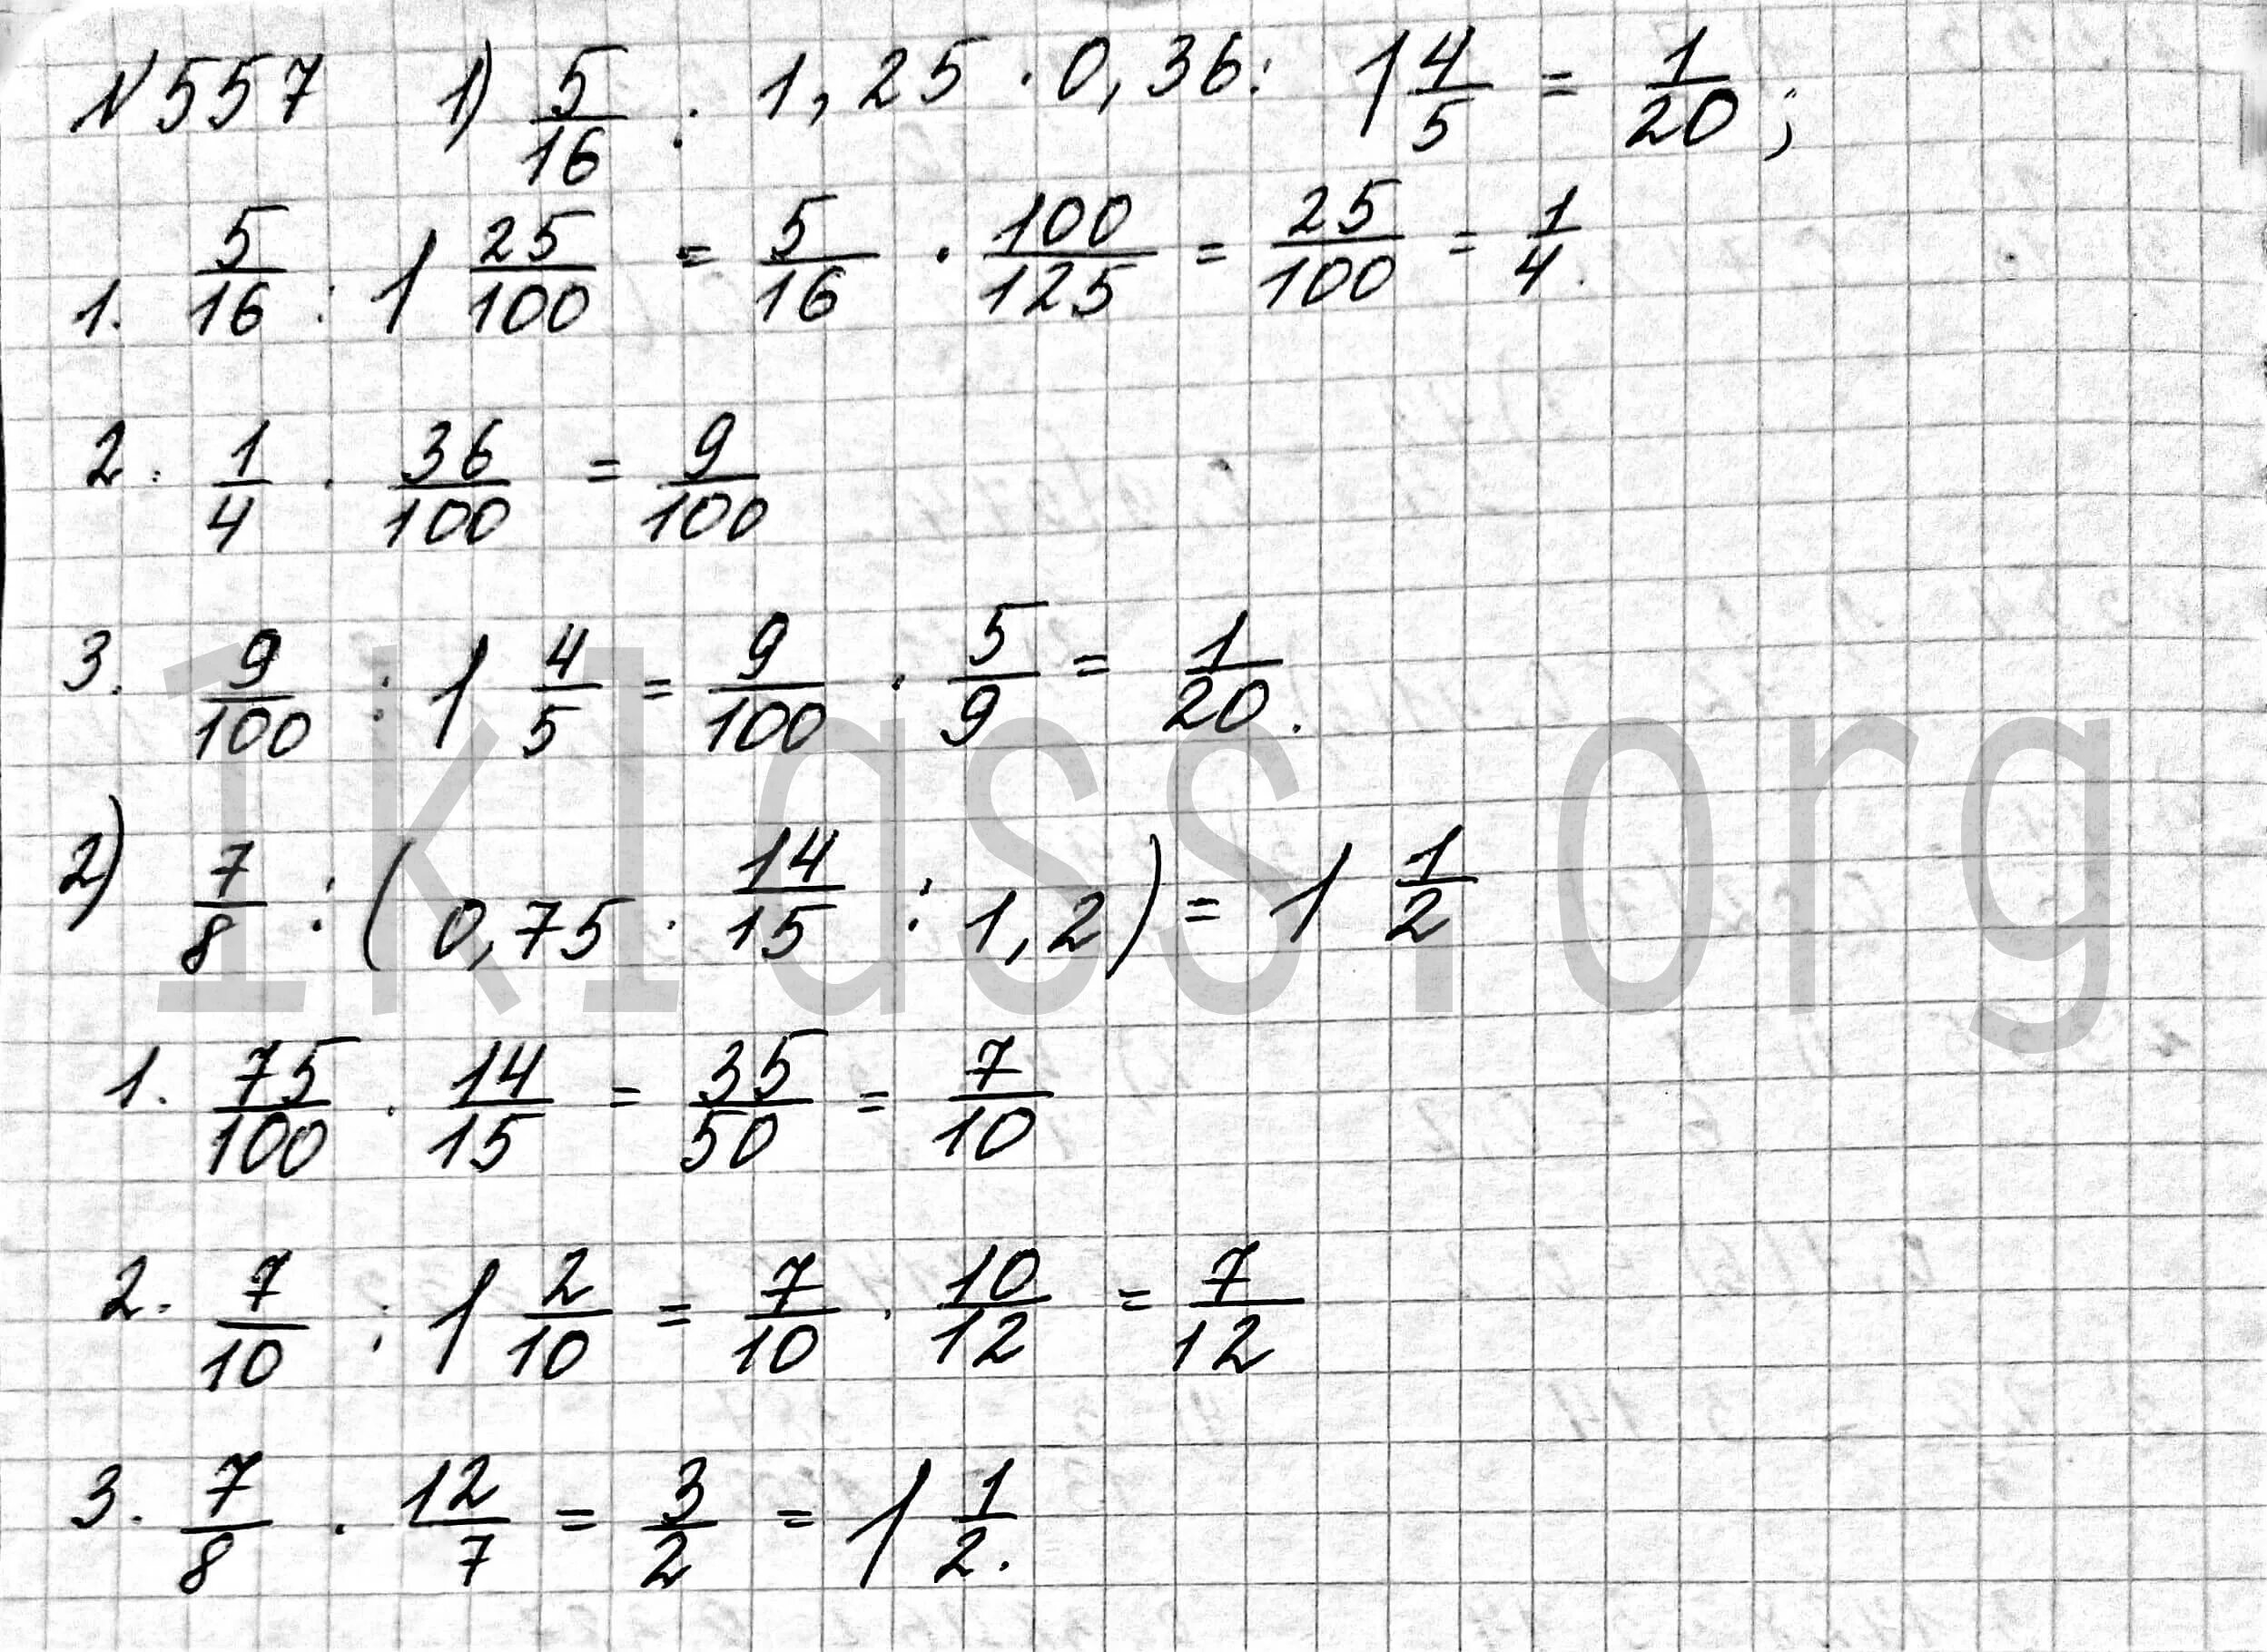 №557 1) 5/16 : 1,25 · 0,36 : 1 4/5 = 1/20 ;
1. 5/16 : 1 25/100 = 5/16 · 100/125 = 25/100 = 1/4.
2. 1/4 · 36/100 = 9/100
3. 9/100 : 1 4/5 = 9/100 · 5/9 = 1/20.
Iklass.org
2) 7/8 : ( 0,75 · 14/15 : 1,2 ) = 1 1/2
1. 75/100 · 14/15 = 35/50 = 7/10
2. 7/10 : 1 2/10 = 7/10 · 10/12 = 7/12
3. 7/8 · 12/7 = 3/2 = 1 1/2.